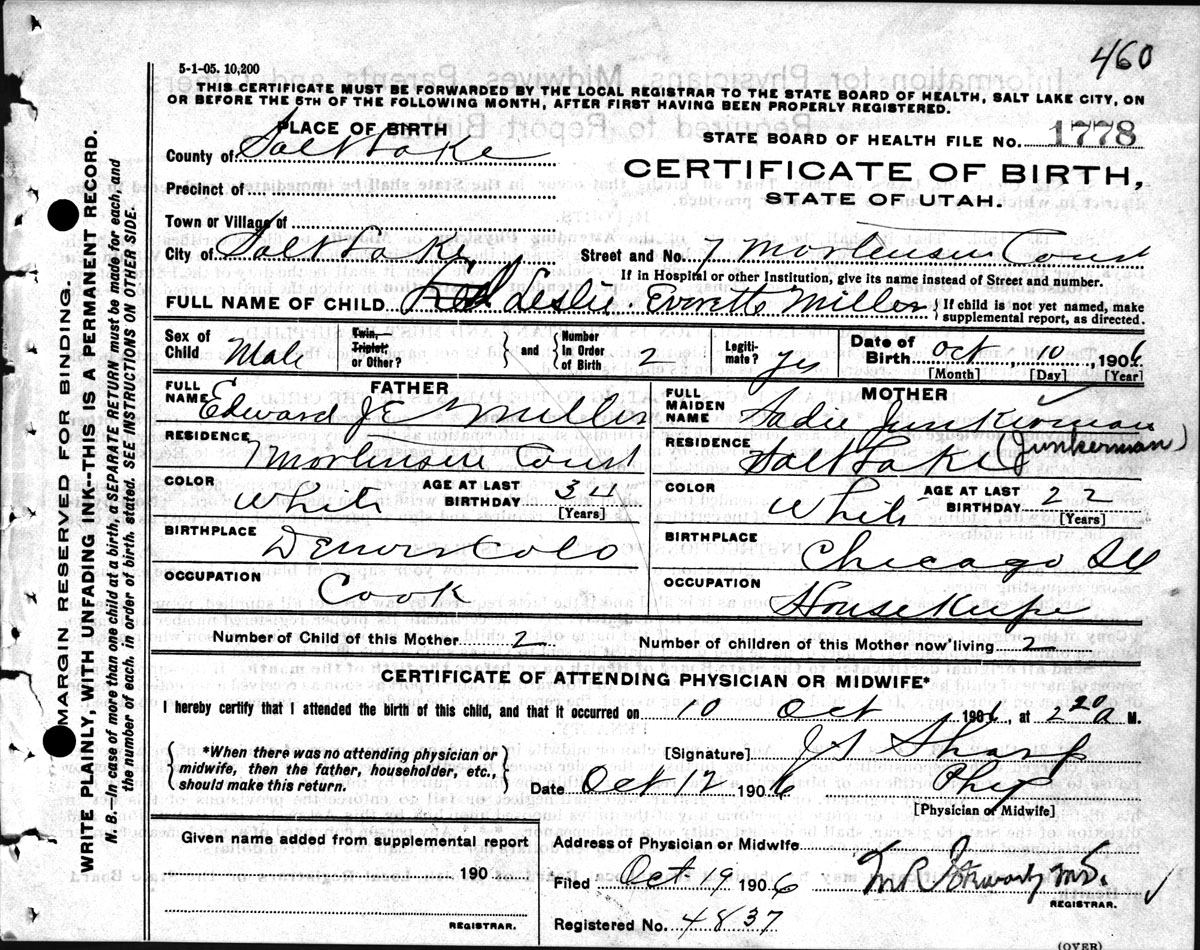 460
5-1-05. 10,200
THIS CERTIFICATE MUST BE FORWARDED BY THE LOCAL REGISTRAR TO THE STATE BOARD OF HEALTH, SALT LAKE CITY, ON
OR BEFORE THE 5TH OF THE FOLLOWING MONTH, AFTER FIRST HAVING BEEN PROPERLY REGISTERED.
PLACE OF BIRTH
STATE BOARD OF HEALTH FILE NO. 1778
County of Salt Lake
CERTIFICATE OF BIRTH,
Precinct of
STATE OF UTAH.
Town or Village of
City of Salt Lake Street and No. 7 Mortensen Court
If in Hospital or other Institution, give its name instead of Street and number.
FULL NAME OF CHILD Leslie Everette Miller { If child is not yet named, make
supplemental report, as directed.
Sex of Child Male Twin, Triplet, or Other? and Number In Order of Birth 2 Legiti-mate? yes Date of Birth Oct, 10, 1906
[Month] [Day] [Year]
FATHER
FULL NAME Edward J E Miller
RESIDENCE 7 Mortensen Court
COLOR White AGE AT LAST BIRTHDAY 34 [Years]
BIRTHPLACE Denver Colo
OCCUPATION Cook
MOTHER
FULL MAIDEN NAME Sadie Junkerman
RESIDENCE Salt Lake (Junkerman)
COLOR White AGE AT LAST BIRTHDAY 22 [Years]
BIRTHPLACE Chicago Ill
OCCUPATION House Keeper
Number of Child of this Mother 2 Number of children of this Mother now living 2
CERTIFICATE OF ATTENDING PHYSICIAN OR MIDWIFE*
I hereby certify that I attended the birth of this child, and that it occurred on 10 Oct 1906, at 2 20 a M.
*When there was no attending physician or
midwife, then the father, householder, etc.,
should make this return.
[Signature] Sharp
Date Oct 12 1906 Phy
[Physician of Midwife]
Given name added from supplemental report
190
REGISTRAR.
Address of Physician or Midwife
Filed Oct 19 1906 M.D.
REGISTRAR.
Registered No. 4837
(OVER)
MARGIN RESERVED FOR BINDING.
WRITE PLAINLY, WITH UNFADING INK--THIS IS A PERMANENT RECORD.
N. B. In case of more than one child at a birth, a SEPARATE RETURN must be made for each, and
the number of each, in order of birth, stated. SEE INSTRUCTIONS ON OTHER SIDE.